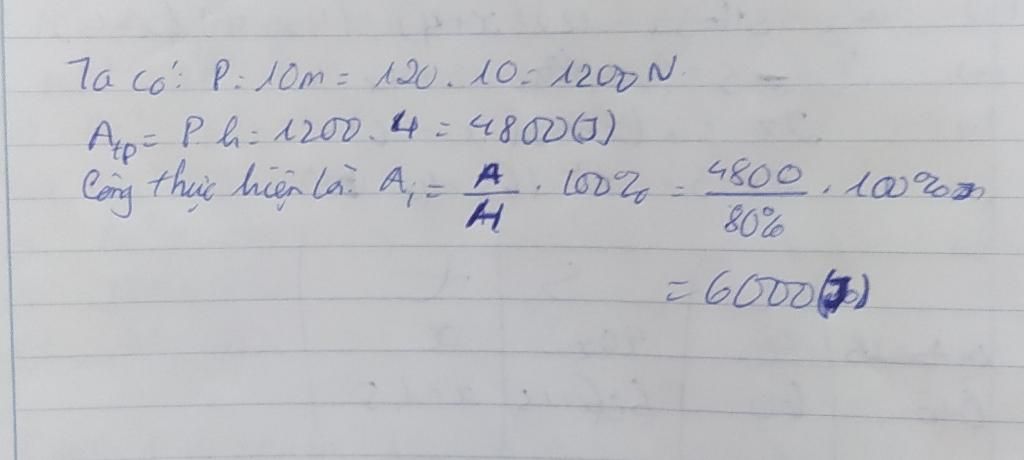 Ta có: P = 10m = 120 . 10 = 1200N
Atp = P.h = 1200 . 4 = 4800(J)
Công thực hiện là: Ai = A/H . 100% = 4800/80% . 100%
= 6000(J)